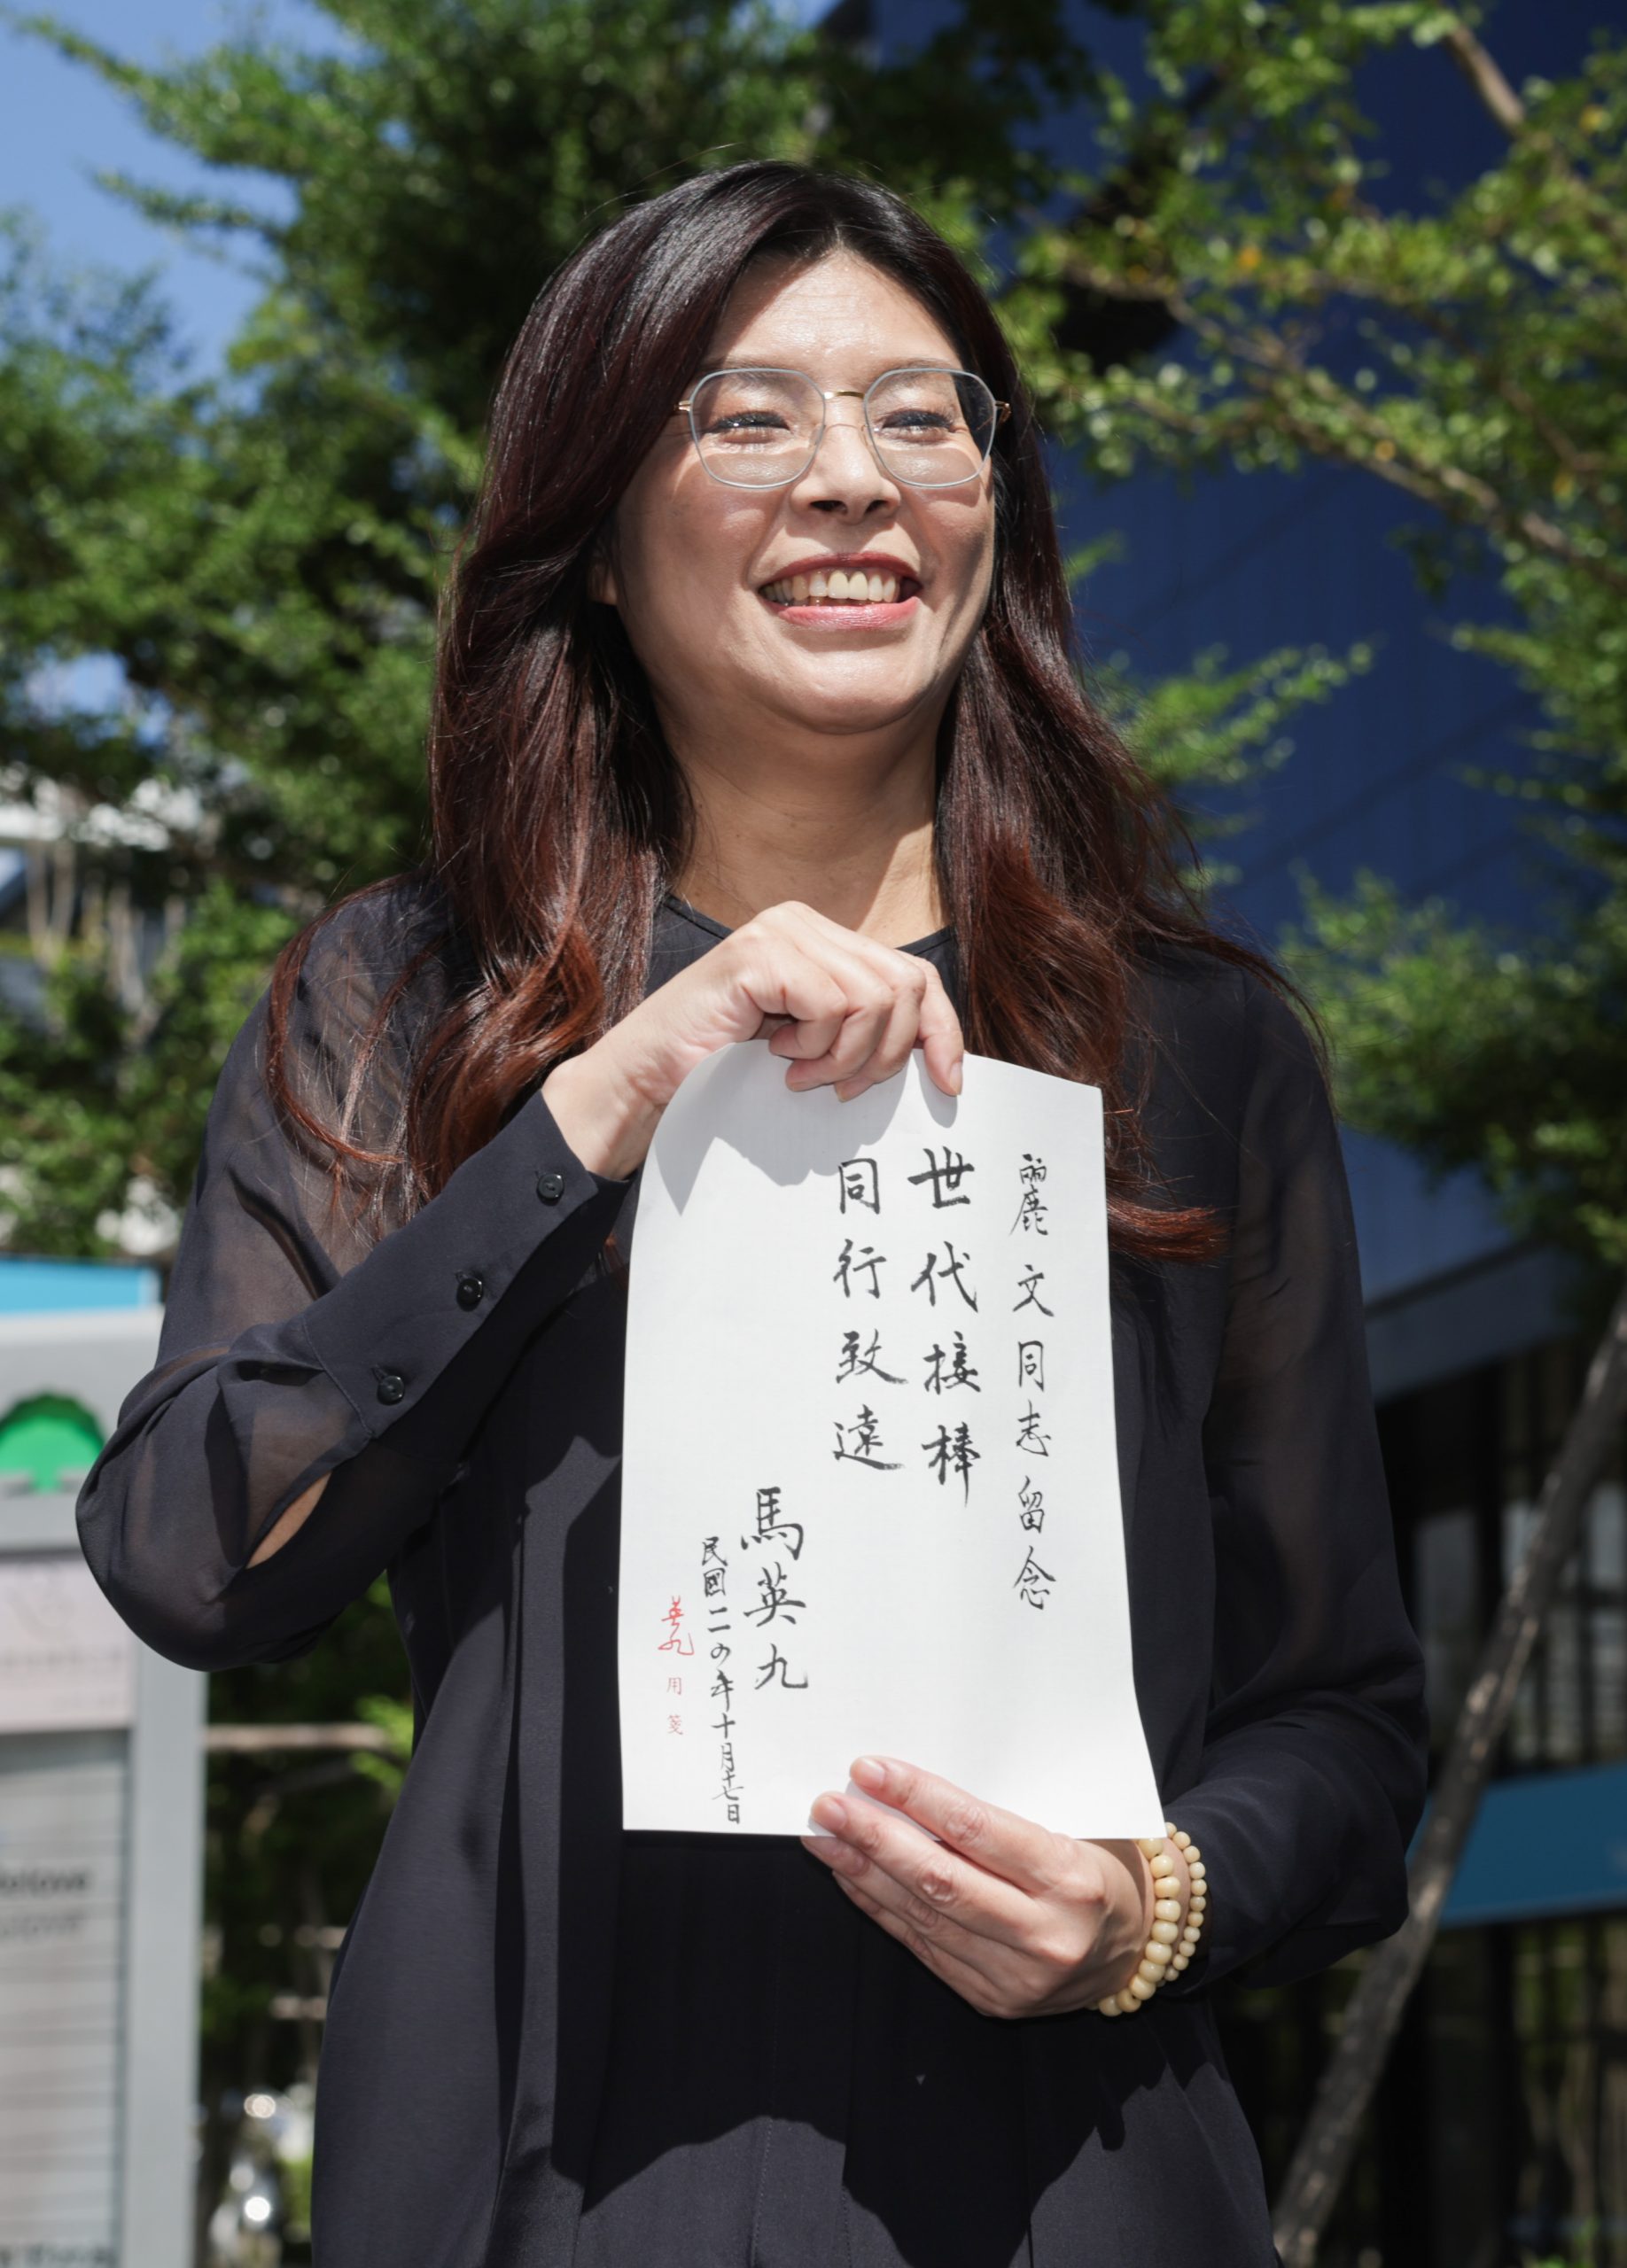 麗文同志留念
世代接棒
同行致遠
馬英九
民國一一四年十月十七日
英九
用箋